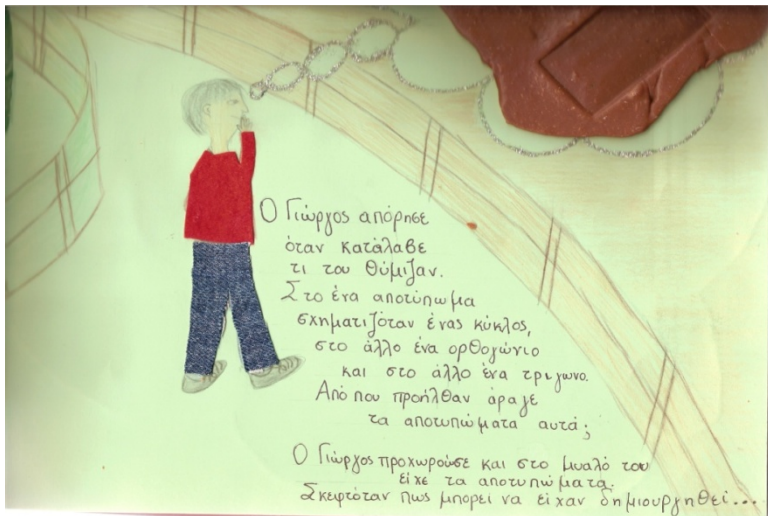 Ο Γιώργος απόρησε
όταν κατάλαβε
τι του θύμιζαν.
Στο ένα αποτύπωμα
σχηματιζόταν ένας κύκλος,
στο άλλο ένα ορθογώνιο
και στο άλλο ένα τρίγωνο.
Από που προήλθαν άραγε
τα αποτυπώματα αυτά;
Ο Γιώργος προχωρούσε και στο μυαλό του
είχε τα αποτυπώματα.
Σκεφτόταν πως μπορεί να είχαν δημιουργηθεί...